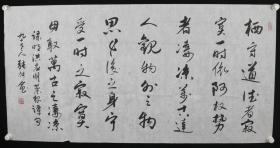 栖守道德者寂
寞一時依阿权势
者凄凉萬古達
人觀物外之物
思身後之身宁
受一時之寂寞
毋取萬古之凄凉
录明洪应明菜根谭句